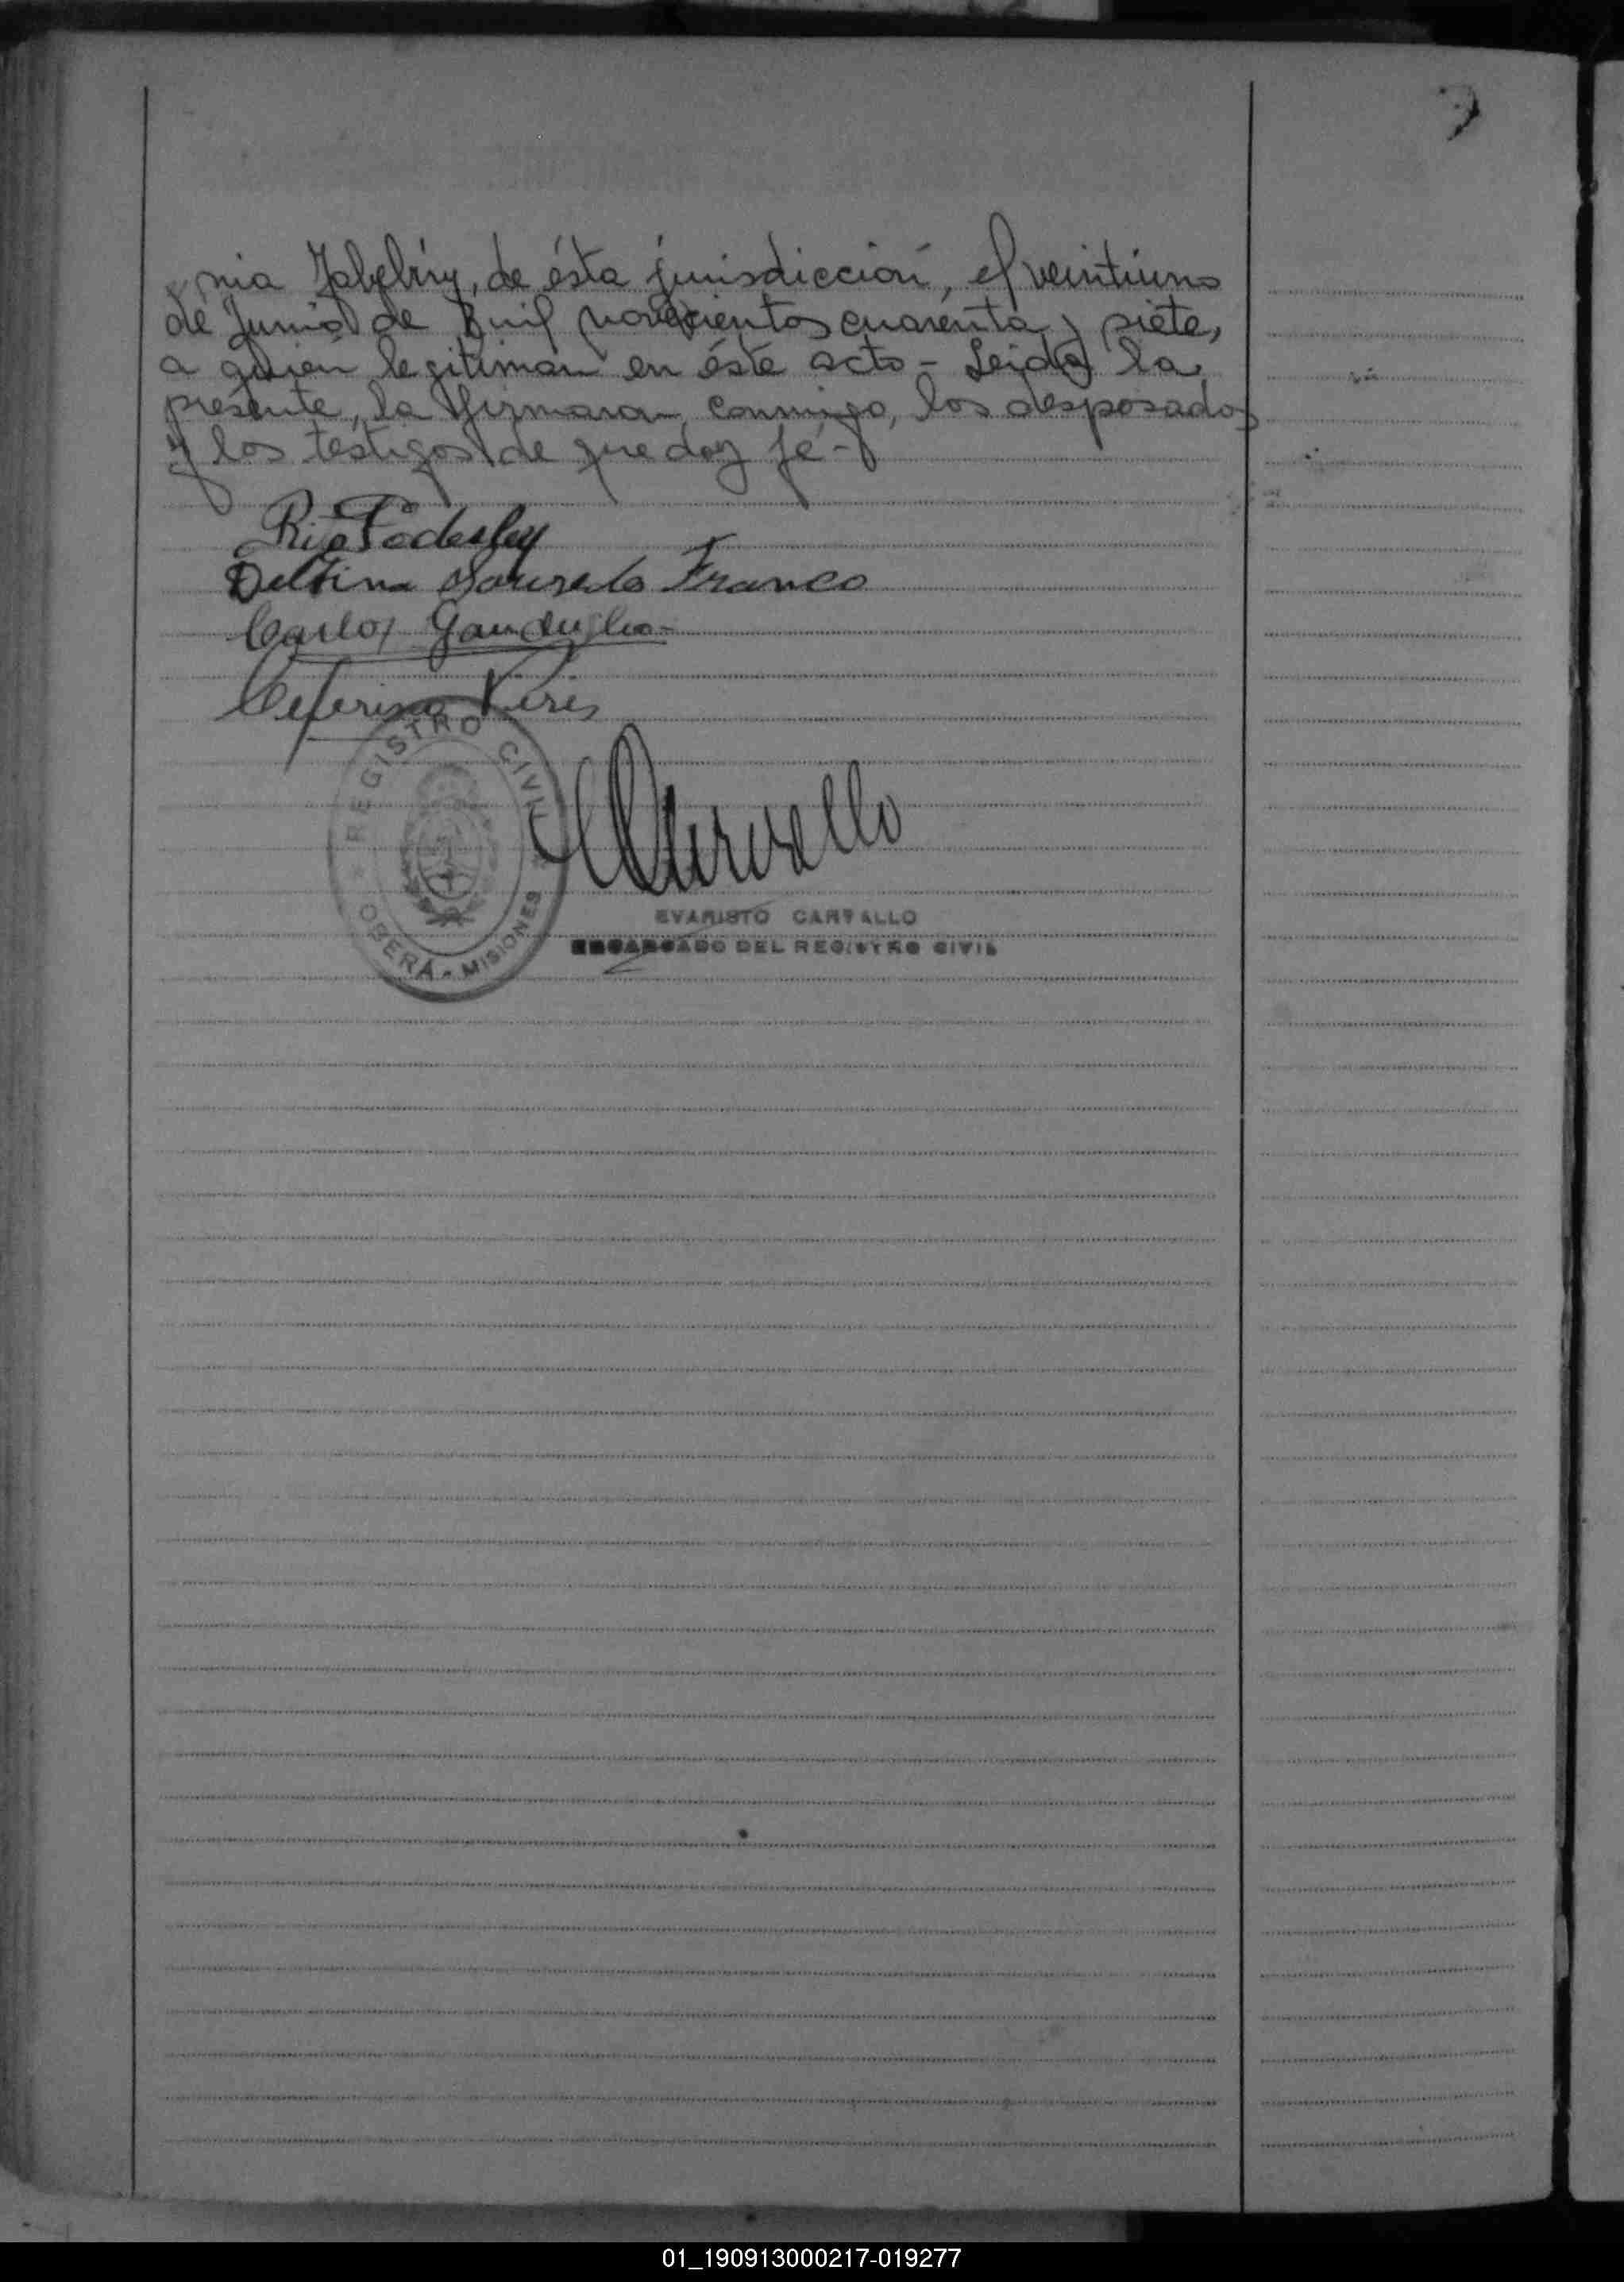 nia Yabebiry, de ésta jurisdicción, el veintiuno
de Junio de mil novecientos cuarenta y siete,
a quien legitiman en éste acto - Leida la
presente, la firmaron conmigo, los desposados
y los testigos de que doy fé -
Delfina Franco
Carlos Ganduglia
Ceferino Piris
REGISTRO CIVIL
OBERÁ - MISIONES
Carvallo
EVARISTO CARVALLO
ENCARGADO DEL REGISTRO CIVIL
01_190913000217-019277